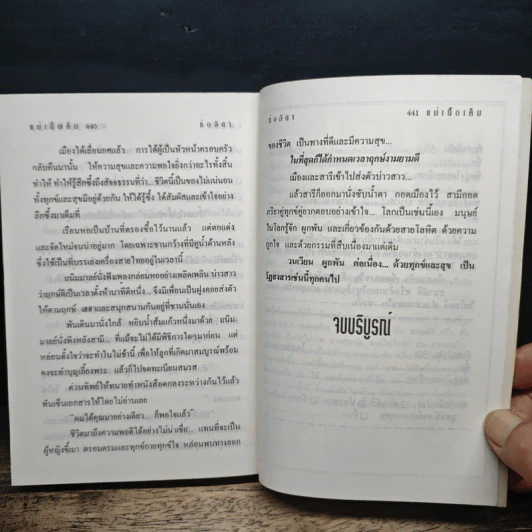 แม่เนื้อเค็ม 440
ช่อลัดา
เมืองได้เลื่อนยศแล้ว การได้ผู้เป็นหัวหน้าครอบครัว
กลับคืนมานั้น ให้ความสุขและความพอใจยิ่งกว่าอะไรทั้งสิ้น
ทำให้ ทำให้รู้สึกซึ้งถึงสัจธรรมที่ว่า...ชีวิตนี้เป็นของไม่แน่นอน
ทั้งทุกข์และสุขมีอยู่ด้วยกัน ให้ได้รู้ซึ้ง ได้สัมผัสและเข้าใจอย่าง
ลึกซึ้งมาเต็มที่
เรือนหอเป็นบ้านที่ตรงซื้อไว้นานแล้ว แต่ตกแต่ง
และจัดใหม่จนน่าอยู่มาก โดยเฉพาะชานกว้างที่มีคูน้ำด้านหลัง
ซึ่งใช้เป็นที่บรรเลงเครื่องสายไทยอยู่ในเวลานี้
ยนิมมาลย์นั่งฟังเพลงกล่อมหออย่างเพลิดเพลิน บ่าวสาว
ว่าฤกษ์ดีเป็นเวลาตั้งห้านาฬิกาตีหนึ่ง... จึงมีเพื่อนเป็นฝูงคอยส่งตัว
ให้ตามฤกษ์ เฮฮาและสนุกสนานกันอยู่ที่ชานนั่นเอง
พันเดินมานั่งใกล้ หยิบน้ำส้มแก้วหนึ่งมาด้วย ยนิม-
มาลย์นั่งพิงหลังสามี... ที่แม้จะไม่ได้มีพิธีการใดๆมาก่อน แต่
หล่อนตั้งใจว่าจะทำในไม่ช้านี้ เพื่อให้ลูกที่เกิดมาสมบูรณ์พร้อม
คงจะทำบุญเลี้ยงพระ แล้วก็ไปจดทะเบียนสมรส
ด่วนทิพย์ให้ทนายทำหนังสือตกลงระหว่างกันไว้แล้ว
พันเซ็นเอกสารให้โดยไม่อ่านเลย
"ผมได้คุณมาอย่างเดียว... ก็พอใจแล้ว"
ชีวิตมาถึงความพอดีได้อย่างไม่น่าเชื่อ... แทนที่จะเป็น
ผู้หญิงขี้เมา ตรอมตรมและทุกข์กายทุกข์ใจ หล่อนพบทางออก
ช่อลัดา
441 แม่เนื้อเค็ม
ของชีวิต เป็นทางที่ดีและมีความสุข...
ในที่สุดก็ได้กำหนดเวลาฤกษ์งามยามดี
เมืองและสารีเข้าไปส่งตัวบ่าวสาว...
แล้วสารีก็ออกมานั่งซับน้ำตา กอดเมืองไว้ สามีกอด
ภริยาคู่ทุกข์คู่ยากตอบอย่างเข้าใจ... โลกเป็นเช่นนี้เอง มนุษย์
ในโลกรู้จัก ผูกพัน และเกี่ยวข้องกันด้วยสายโลหิต ด้วยความ
ถูกใจ และด้วยกรรมที่สืบเนื่องมาแต่เดิม
วนเวียน ผูกพัน ต่อเนื่อง... ด้วยทุกข์และสุข เป็น
วัฏสงสารเช่นนี้ทุกคนไป
จบบริบูรณ์